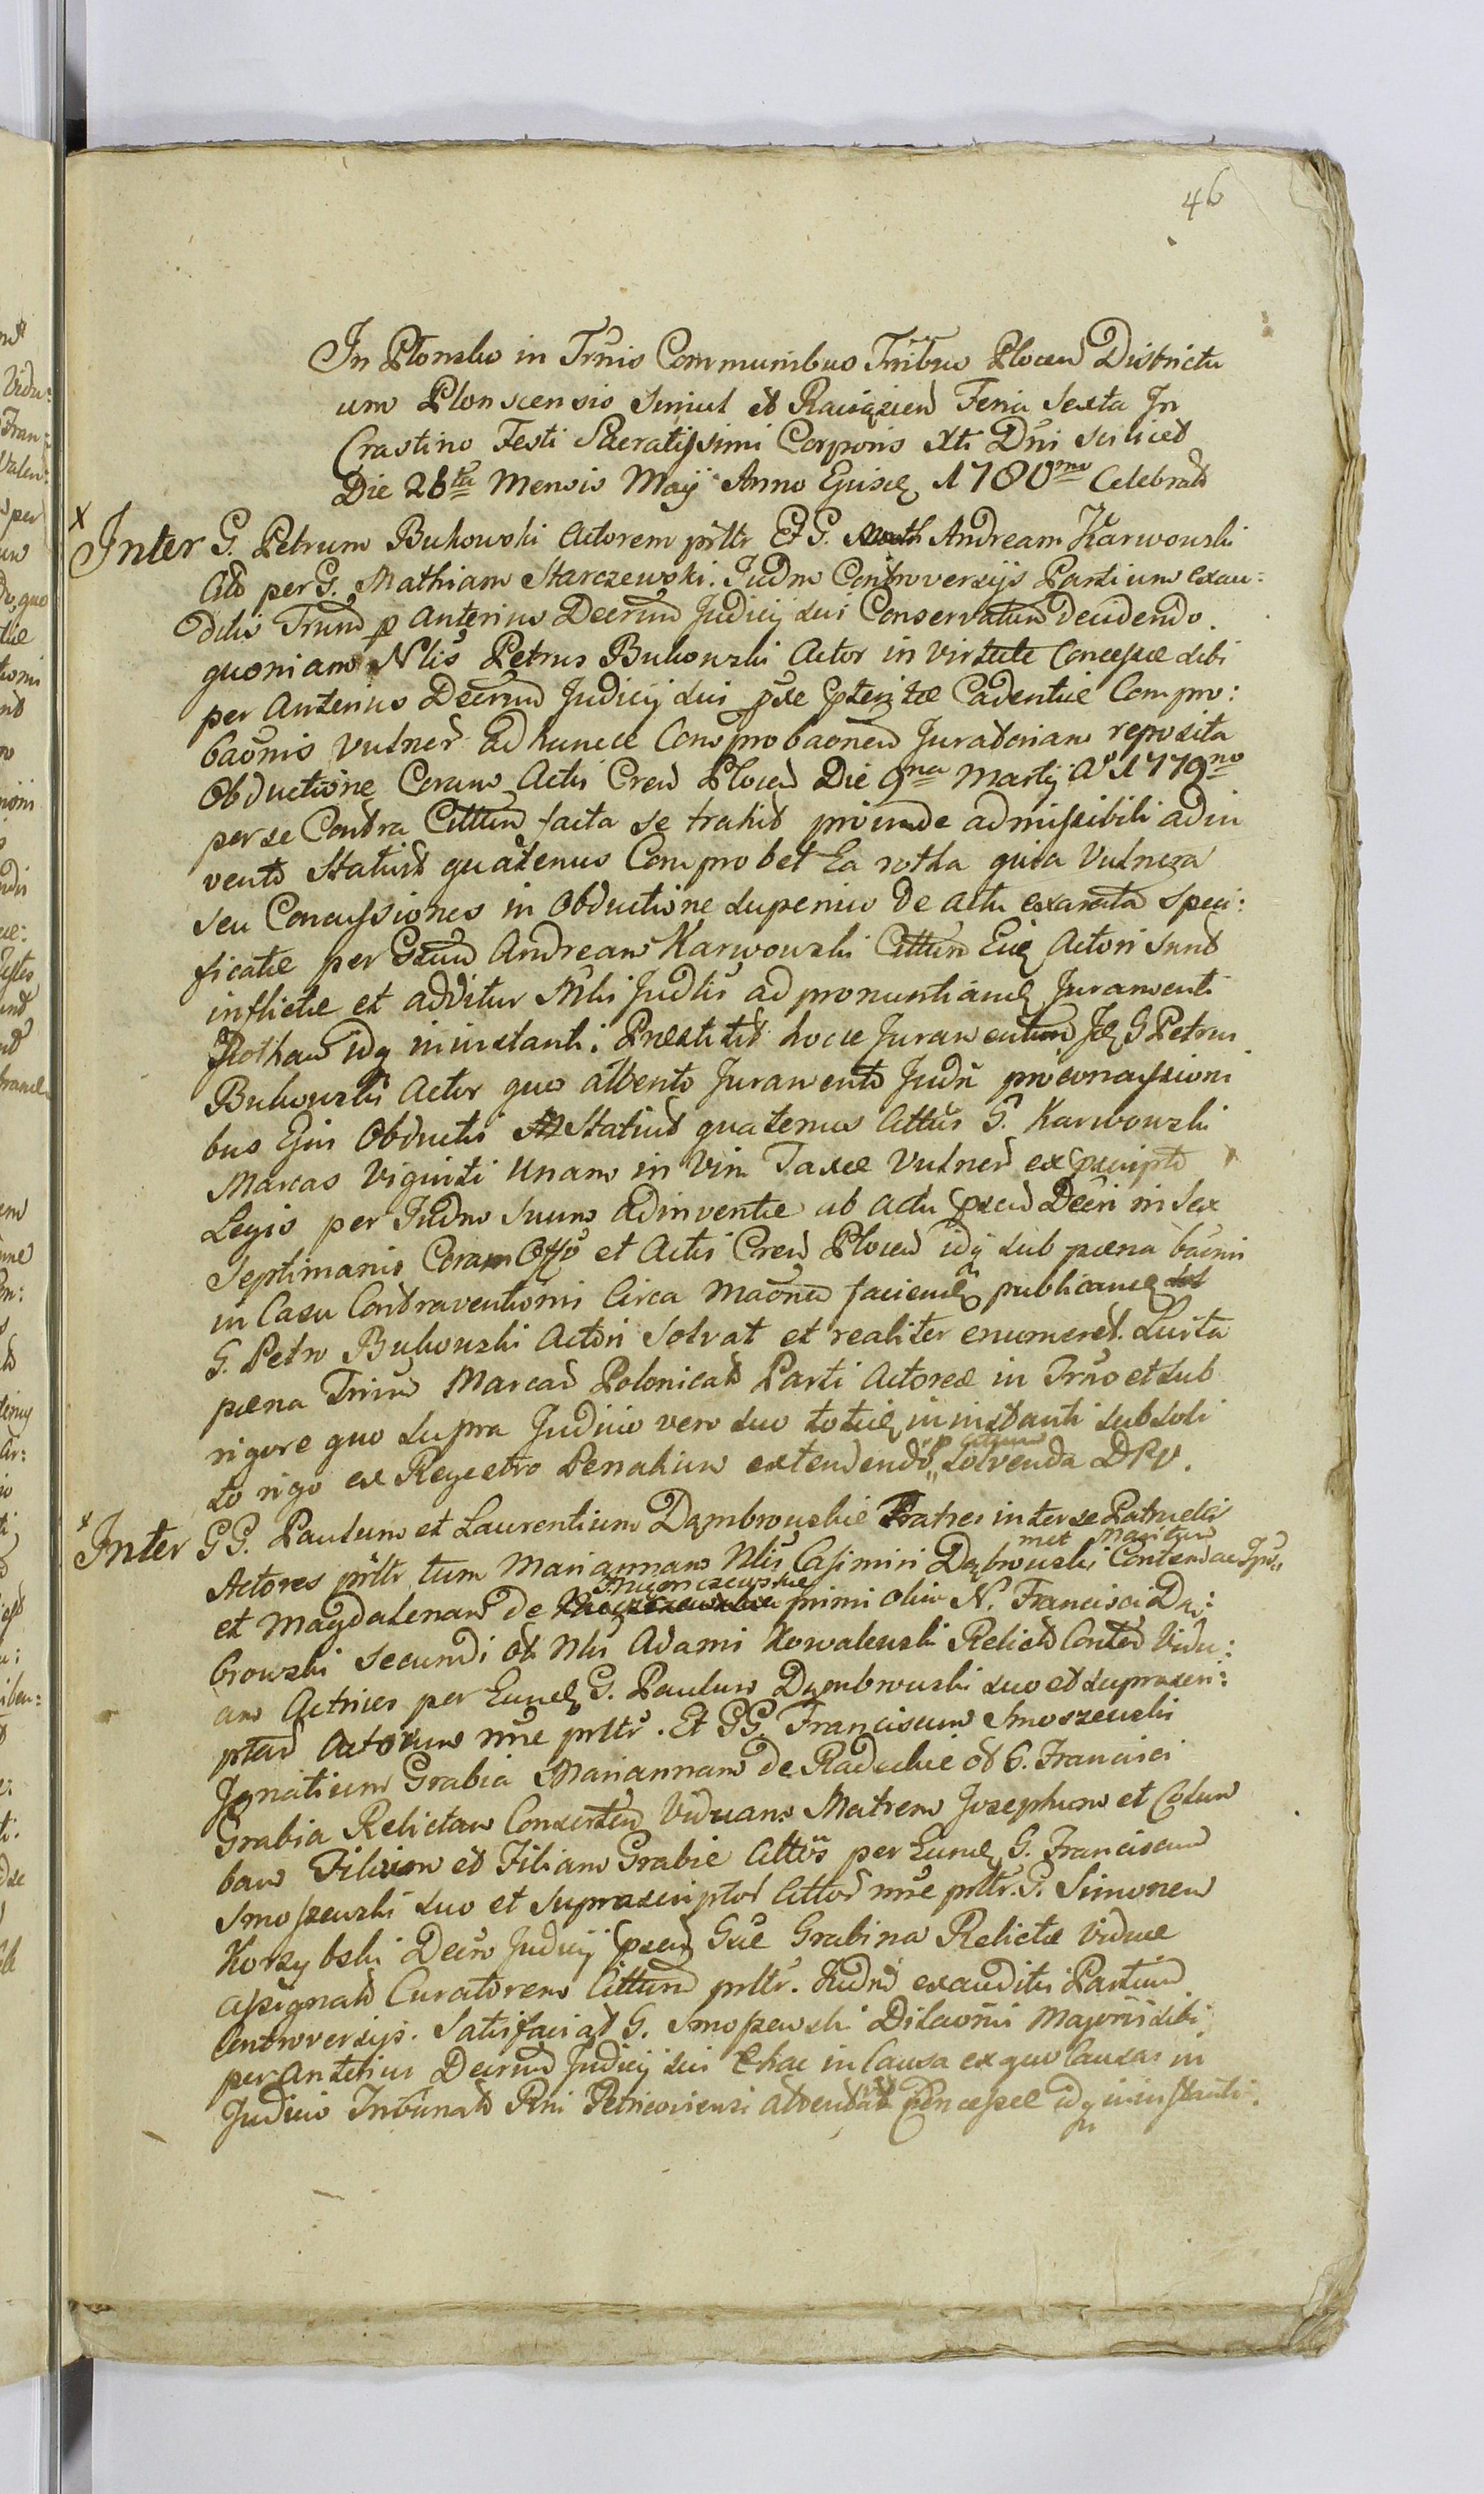 46
In Plonsko in Trnis Communibus Tribus Plocen Districtu
um Plonscensis Simul et Raciązien Feria Sexta In
Crastino Festi Sacratissimi Corporis Xti Dni scilicet
Die 26ta Mensis Maij Anno Ejusd 1780mo Celebrat
Inter G. Petrum Bukowski Actorem prltr Et G. Andream Karwowski
Citt per G. Mathiam Starczewski. Judm Controversijs Partium exau:
ditis Trnum p anterius Decrum Judicij sui Conservatum decidendo.
quoniam Nlis Petrus Bukowski Actor in virtute Concessae sibi
per anterius Decrum Judicij sui Cadentiae Compro:
baonis vulner ad hancce Comprobaonem Juratoriam reposita
Obductione Coram Actis Cren Plocen Die 9na Martij Ao 1779no
per se Contra Cittum facta se trahit proinde admissibili adin
vento Statuit quatenus Comprobet Ea rotha quia Vulnera
seu Concussiones in Obductione superius de actu exarata speci:
ficatae per Gsum Andream Karwowski Cittum Eid Actori sunt
inflictae et additur Nlis Judlis ad pronuntiand Juramenti
Rotham idq in instanti. Praestitit hocce Juramentum Id G Petrus
Bukowski Actor quo attento Juramento Judm pro concussioni
bus Ejus Obductis Statuit quatenus Cittus G. Karwowski
Marcas Viginti Unam in Vim Taxae Vulner ex praescripto
Legis per Judm Suum adinventae ab actu Decri in Sex
Septimanis Coram Offo et Actis Cren Plocen idq sub paena banni
in Casu Contraventionis Circa maonem faciend publicand
G. Petro Bukowski Actori Solvat et realiter enumeret. Luita
paena Trium Marcar Polonicals Parti Actoreae in Trno et sub
rigore quo supra Judicio vero suo totid in instanti sub soli
to rigo ex Regestro Penalium extendendo solvenda DPV.
Inter GG. Paulum et Laurentium Dąmbrowskie Fratres inter se Patrueles
Actores prltr tum Mariannam Nlis Casimiri Dąbrowski Contoralem
et Magdalenam de primi olim N. Francisci Dą:
browski secundi et Nlis Adami Kowalewski Relict Contor Vidu:
am Actrices per Eund G. Paulum Dąmbrowski suo et suprascri:
ptar Actorum nne prltr. Et GG. Franciscum Smoszewski
Ignatium Grabia Mariannam de Radzikie et G. Francisci
Grabia Relictam Consortem Viduam Matrem Josephum et Colum
bam Filium et Filiam Grabie Cittos per Eund G. Franciscum
Smoszewski suo et suprascriptor Cittor nne prltr. G. Simonem
Korzybski Decro Judicij Gsae Grabina Relictae Viduae
assignat Curatorem Cittum prltr. Judm exauditis Partium
Controversijs. Satisfaciat G. Smoszewski Dilaonis Majoris sibi
per anterius Decrum Judicij sui hac in Causa ex quo Causas in
Judicio Tribunals Rni Petricoviensi attentat Concessae idq in instanti